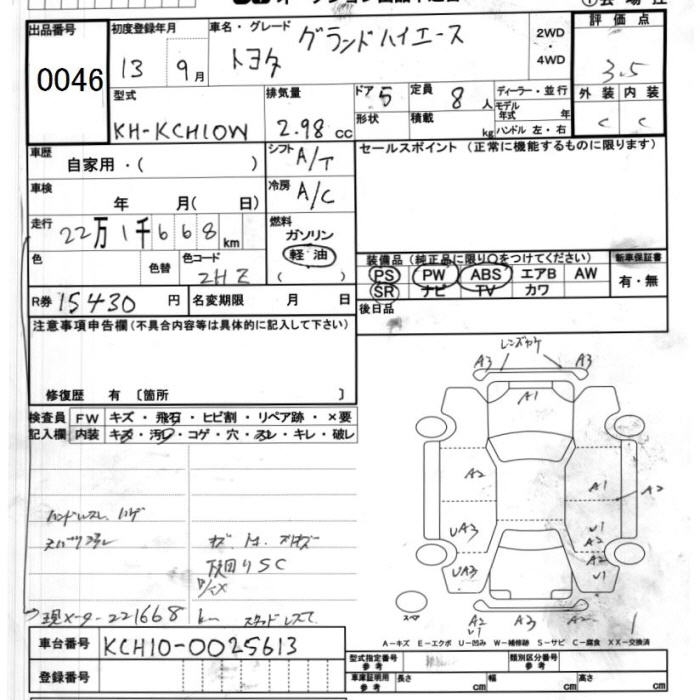 出品番号
0046
初度登録年月
13 9月
車名・グレード
トヨタ グランドハイエース
2WD
・
4WD
評価点
3.5
型式
KH-KCH10W
排気量
2.98 cc
ドア 5
定員 8 人
形状
積載 kg
ディーラー・並行
モデル
年式 年
ハンドル 左・右
外装 内装
C C
車歴
自家用・( )
シフト A/T
セールスポイント (正常に機能するものに限ります)
車検
年 月( 日)
冷房 A/C
走行
22万1千668km
燃料
ガソリン
軽油
( )
色
色替
色コード
2HZ
装備品 (純正品に限り○をつけてください)
PS PW ABS エアB AW
SR ナビ TV カワ
新車保証書
有・無
R券 15430 円
名変期限 月 日
後日品
注意事項申告欄 (不具合内容等は具体的に記入して下さい)
修復歴 有 〔箇所 〕
検査員 FW キズ・飛石・ヒビ割・リペア跡・×要
記入欄 内装 キズ・汚レ・コゲ・穴・スレ・キレ・破レ
レンズカケ
A3 A3
A1
A2 A1 A2
UA3 U1
A2
UA3 A2
U1
スペア
A2 A3 A2
U1
ハンドルスレ ハゲ
下回りSC
現メーター221668km スタッドレス
A-キズ E-エクボ U-凹み W-補修跡 S-サビ C-腐食 XX-交換済
車台番号 KCH10-0025613
登録番号
型式指定番号
参考
類別区分番号
参考
車庫証明用
参考
長さ cm 幅 cm 高さ cm